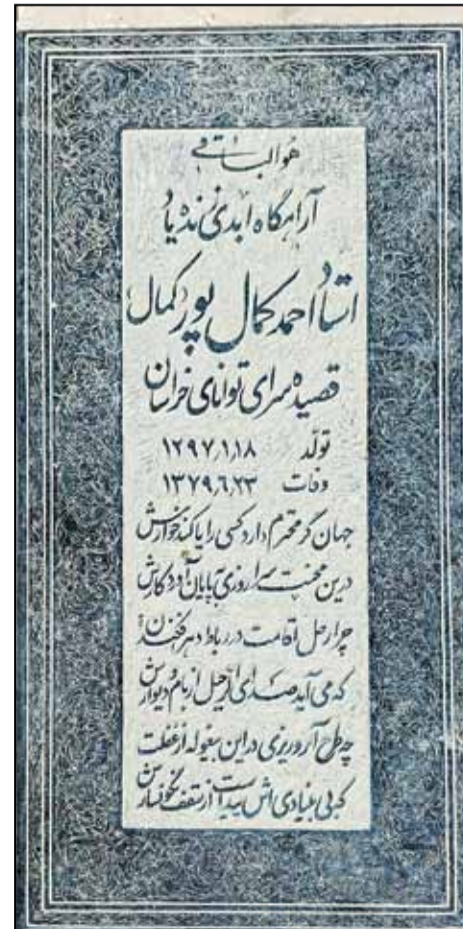 هوالباقی
آرامگاه ابدی زنده یاد
استاد احمد کمال پور «کمال»
قصیده سرای توانای خراسان
تولّد ۱۲۹۷٫۱٫۱۸
وفات ۱۳۷۹٫۶٫۲۳
جهان گر محترم دارد کسی را یا کند خوارش
درین محنت سرا روزی به پایان آورد کارش
چرا رحل اقامت در رباط دهر افکندن
که می آید صدای الرّحیل از بام و دیوارش
چه طرح آرزو ریزی در این بیغوله از غفلت
که بی بنیادی اش پیداست از سقف نگونسارش